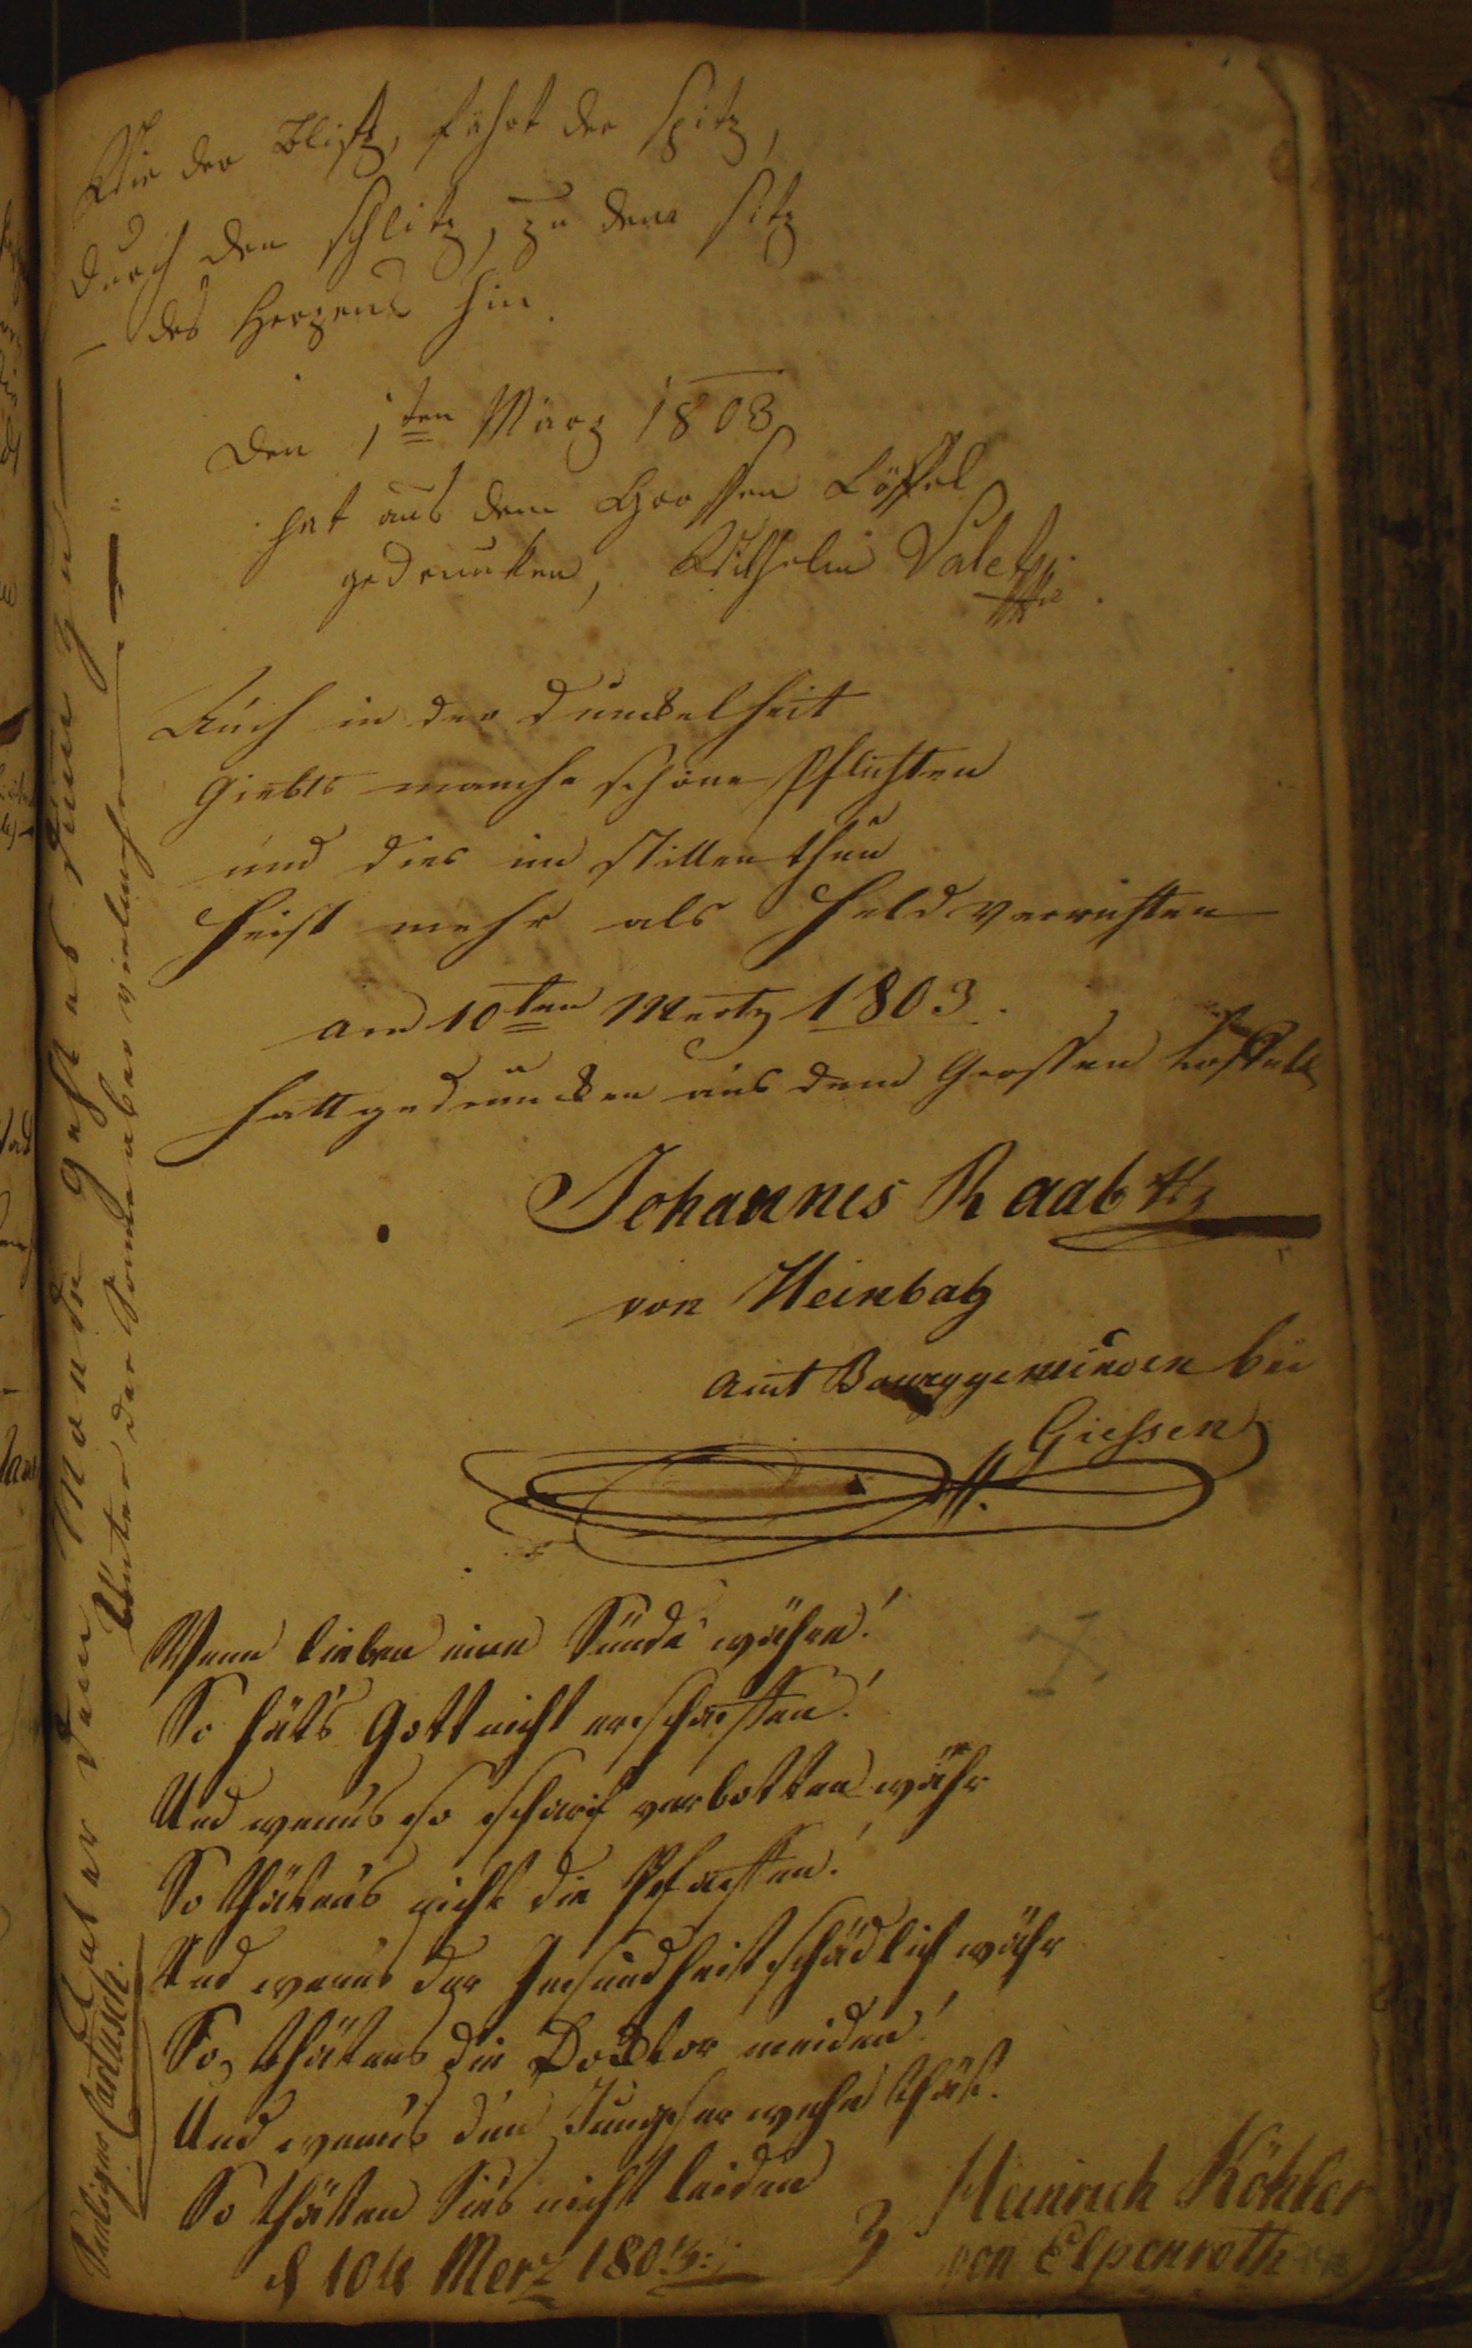 Wie der Blitz, fährt der Spitz,
durch den Schlitz, zu dem Sitz
des Herzens hin.
den 1ten März 1803
hat aus dem Grossen Löffel
gedrunken, Wilhelm
Auch in der Dunckelheit
Giebts manche schöne Pflichten
und dies im stillen thun
heist mehr als Held verrichten
am 10ten Mertz 1803.
hatt gedruncken aus dem Grossen Loffell
Johannes Raab
von
amt Bourggemünden bei
Giessen
Wenn lieben eine Sünde währe!
So häts Gott nicht erschaffen!
Und wenns so scharf verbotten währ
So thätens nicht die Pfaffen!
Und wenns der Gesundheit schädlich währ
So thätens die Docktor meiden!
Und wenns den Jungfer wehe thät.
So thätten Sies nicht leiden
d 10ten Merz 1803:
Heinrich Köhler
von Elpenroth
Unter dem Monde geht es
Unter der Sonne aber
Cantusch.